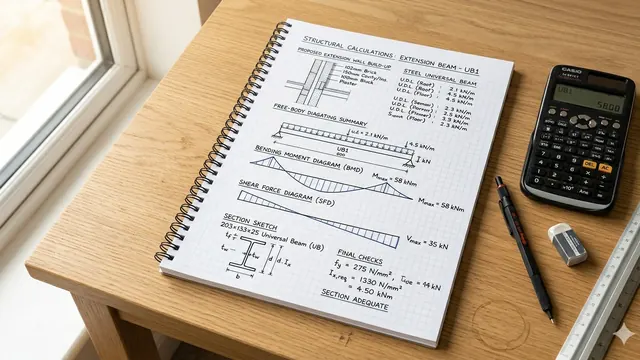 STRUCTURAL CALCULATIONS: EXTENSION BEAM - UB1
PROPOSED EXTENSION WALL BUILD-UP
102mm Brick
150mm Cavity/Ins
100mm Block
Plaster
STEEL UNIVERSAL BEAM
U.D.L (Roof) : 2.1 kN/m
U.D.L (Roof) : 4.5 kN/m
U.D.L (Floor) : 4.5 kN/m
U.D.L : 2.3 kN/m
U.D.L : 3.3 kN/m
U.D.L (Floor) : 2.3 kN/m
: 2.3 kN/m
FREE-BODY DIAGATING SUMMARY
= 2.1 kN/m
4.5 kN/m
UB1
800
I kN
BENDING MOMENT DIAGRAM (BMD)
Mmax = 58 kNm
Mmax = 58 kNm
SHEAR FORCE DIAGRAM (SFD)
Vmax = 35 kN
SECTION SKETCH
203×133×25 Universal Beam (UB)
tf
tw
tw
d
d. Ix
b
FINAL CHECKS
fy = 275 N/mm²,
= 94 kN
Ix,req = 1330 N/mm²
= 4.50 kNm
SECTION ADEQUATE
CASIO
UB1
5800
DEL
AC